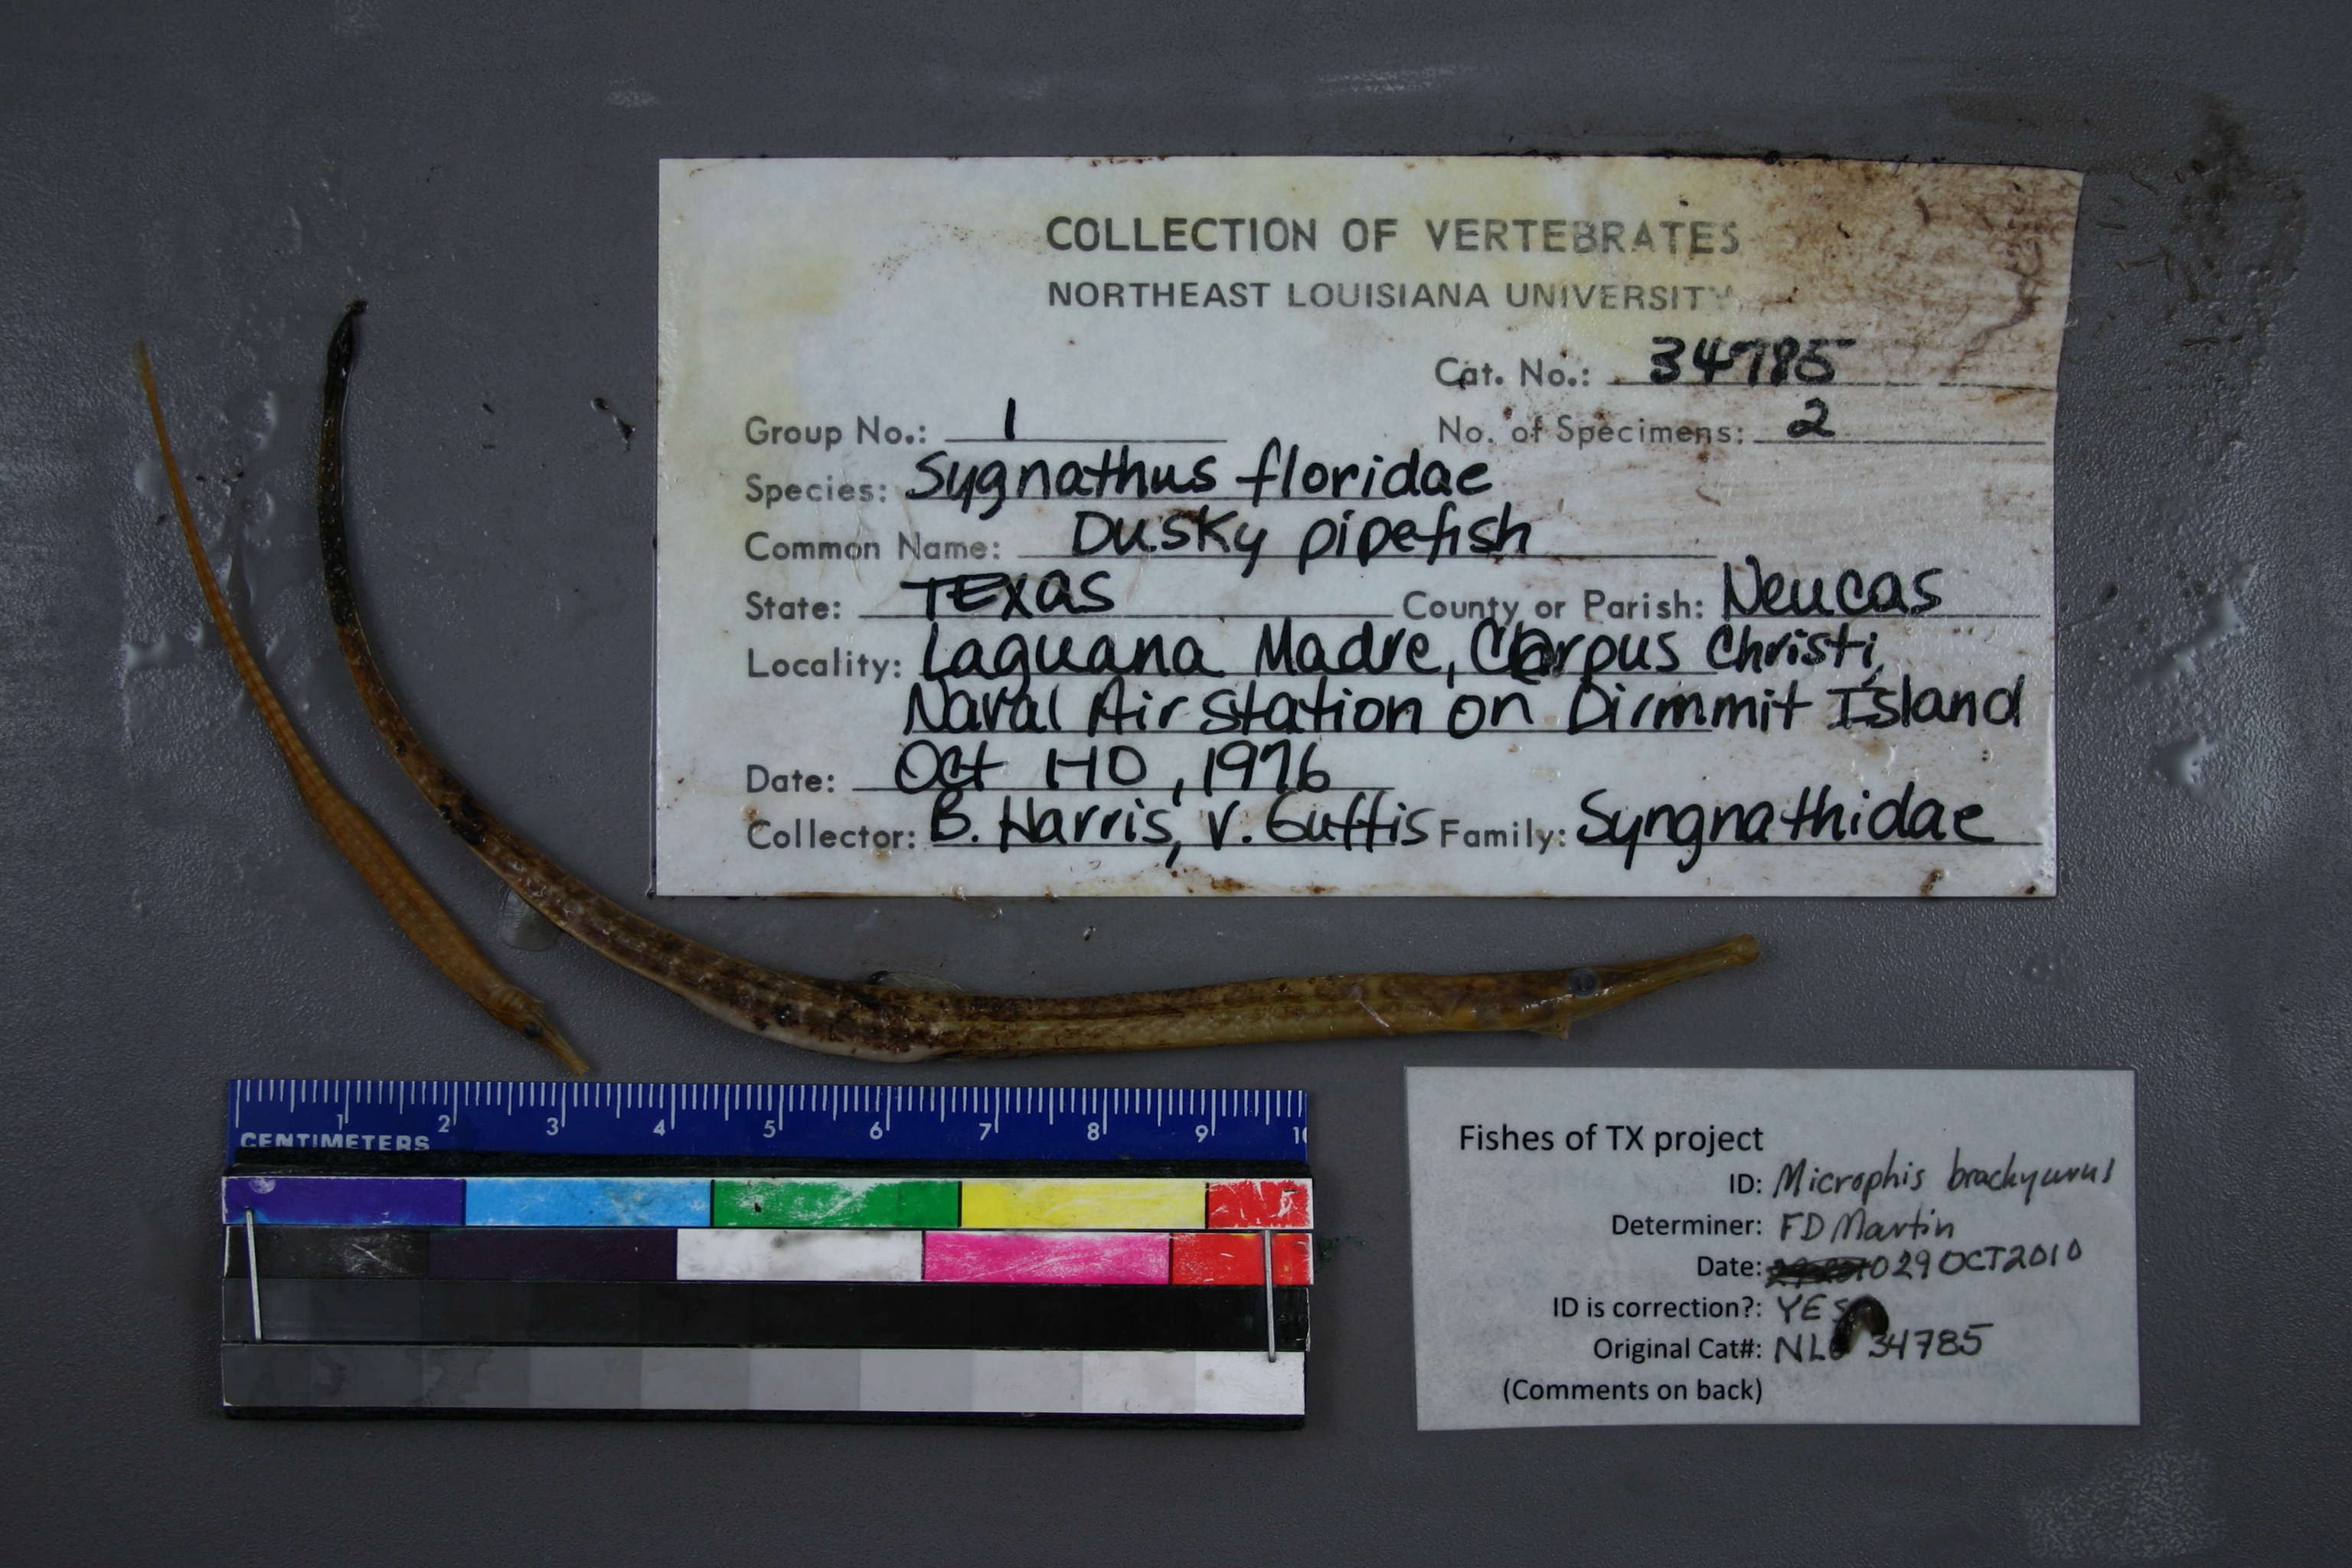 COLLECTION OF VERTEBRATES
NORTHEAST LOUISIANA UNIVERSITY
Cat. No.: 34785
Group No.: 1 No. of Specimens: 2
Species: Sygnathus floridae
Common Name: Dusky pipefish
State: TEXas County or Parish: Neucas
Locality: Laguana Madre, Corpus Christi,
Naval Air Station on Dirmmit Island
Date: Oct 1-10, 1976
Collector: B. Harris, V. Guffis Family: Syngnathidae
1 2 3 4 5 6 7 8 9 10
CENTIMETERS
Fishes of TX project
ID: Microphis brachyurus
Determiner: FD Martin
Date: 029 OCT 2010
ID is correction?: YES
Original Cat#: NLU 34785
(Comments on back)